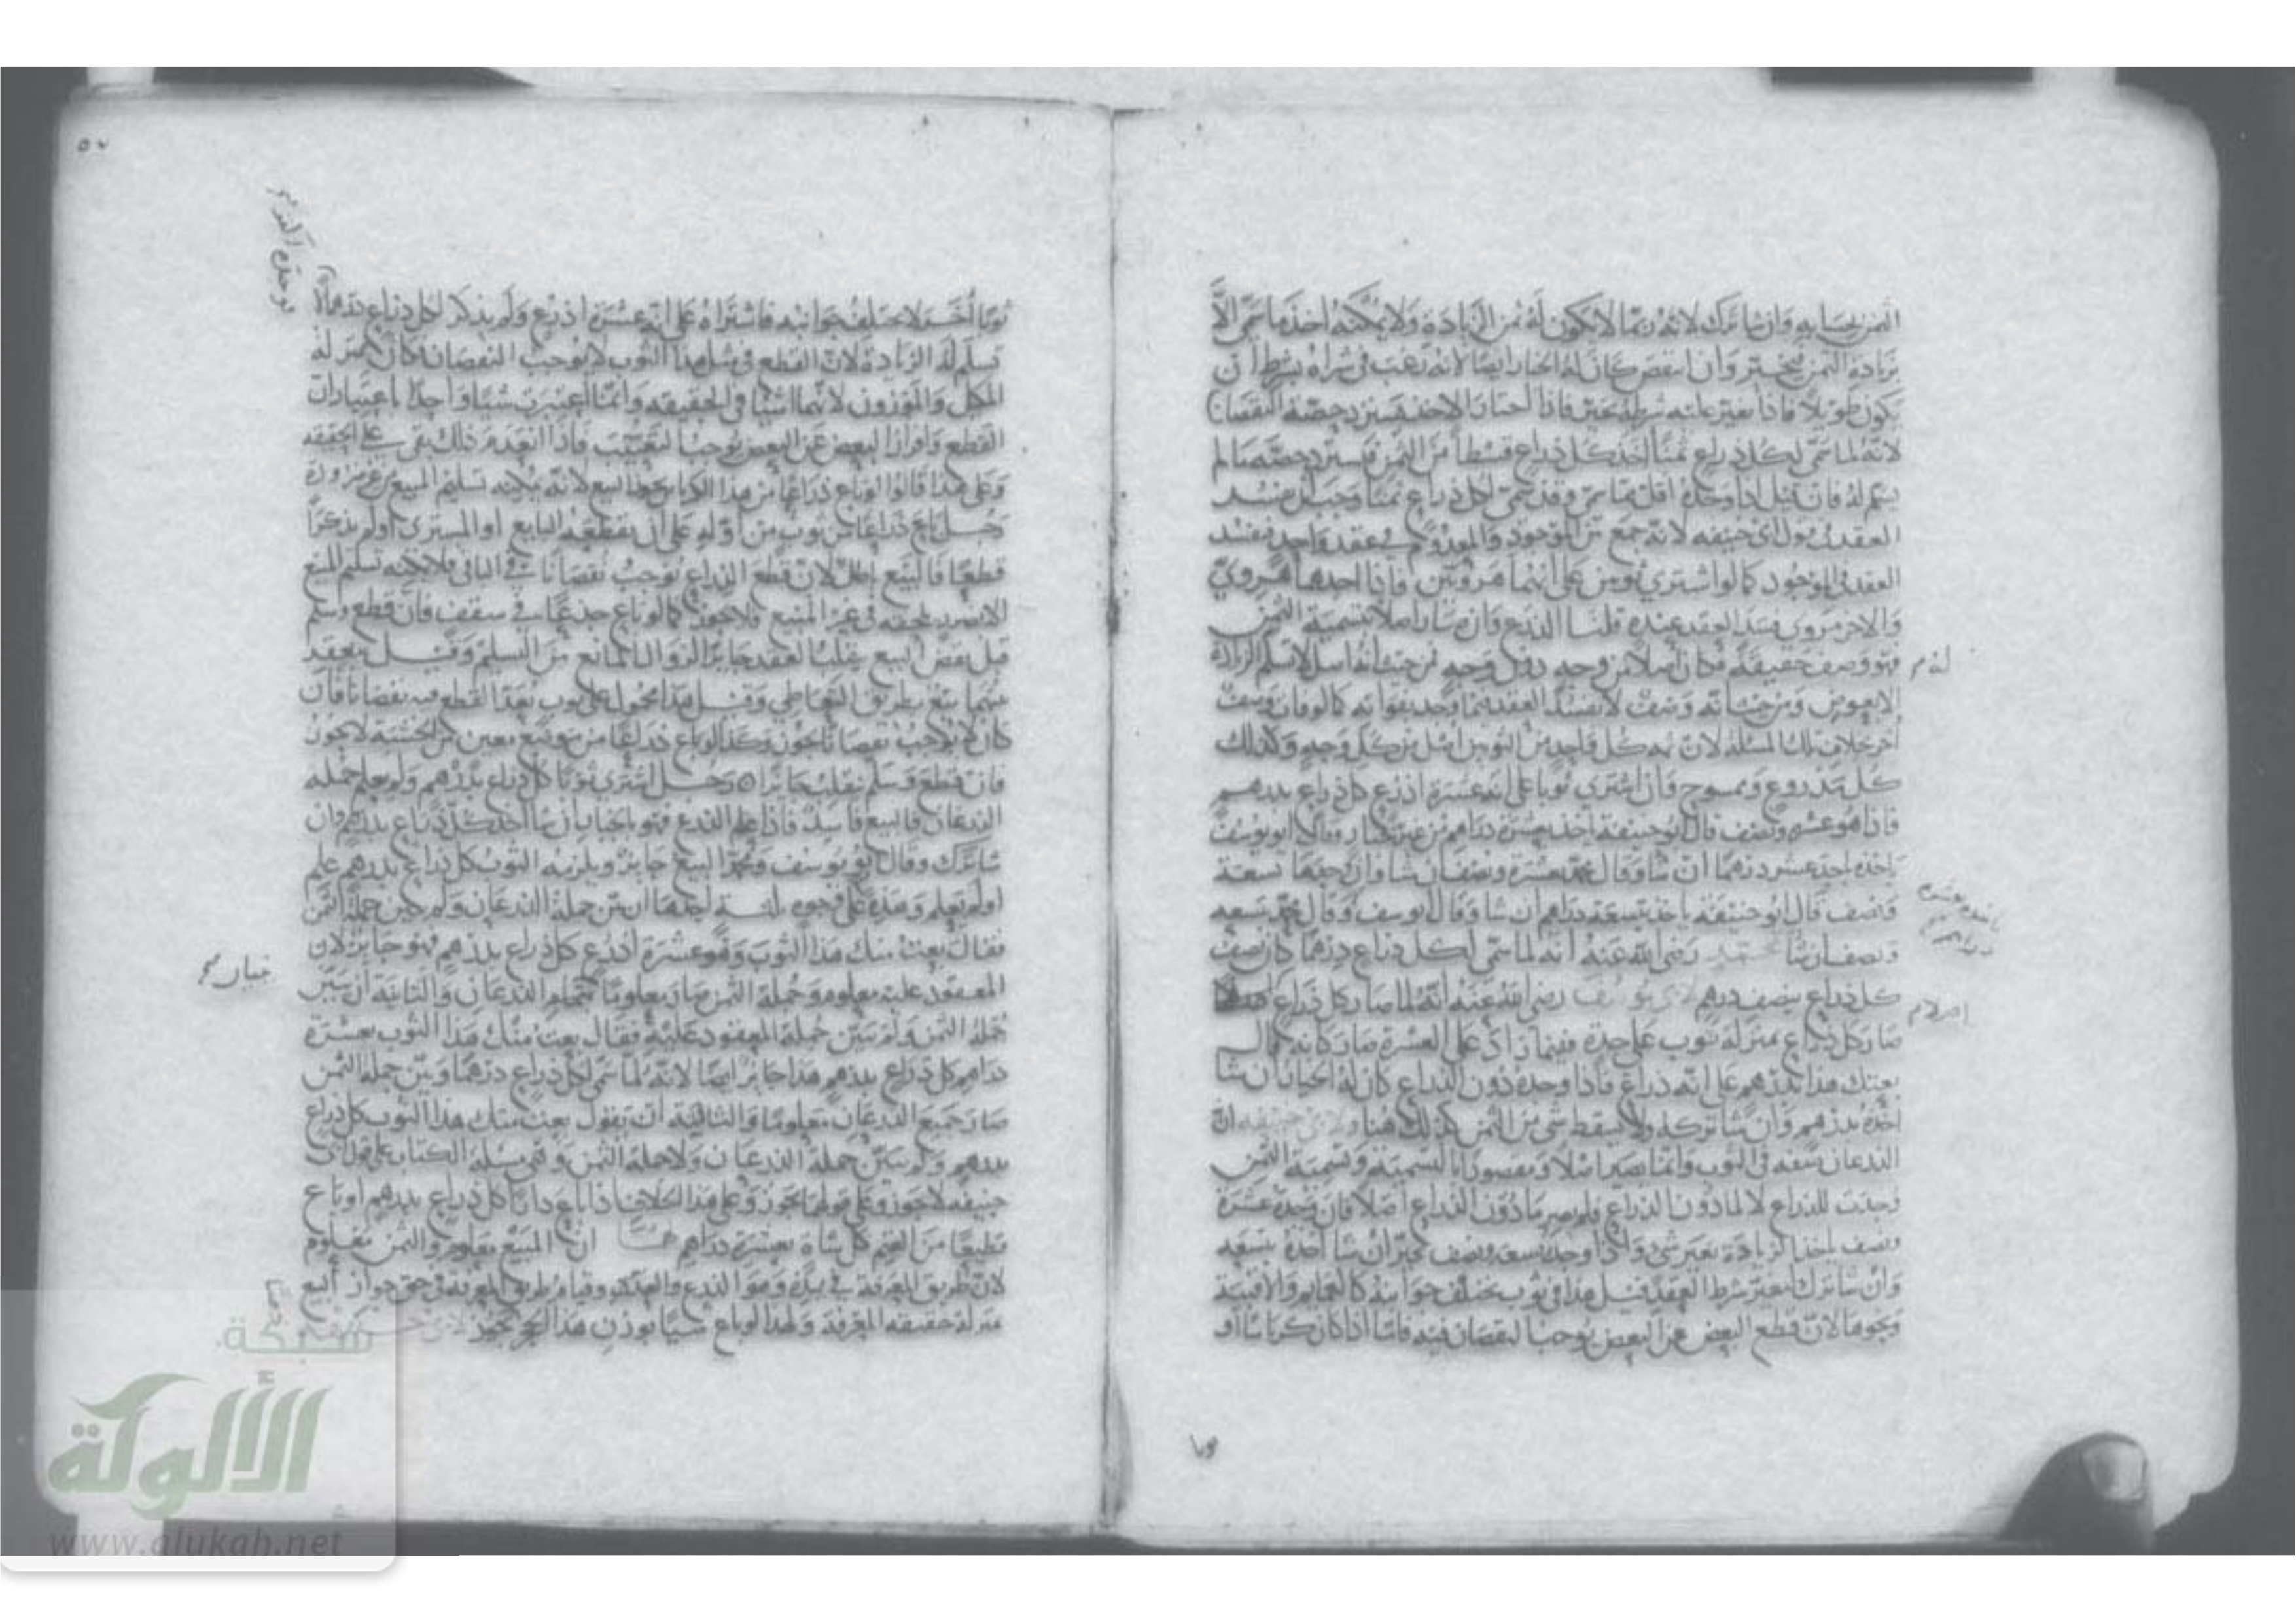 الثمن بحسابه وان شا ترك لانه ربما لا يكون له ثمن الزيادة ولا يمكنه اخذ ما سمى الا
بزيادة الثمن فيخير وان انتقص كان له الخيار ايضا لانه رغب في شراه بشرط ان
يكون طويلا فاذا تغير عليه شرطه يخير فاذا اختار الاخذ يسترد حصة النقصان
لانه لما سمى لكل ذراع ثمنا اخذ كل ذراع قسطا من الثمن فيسترد حصة ما لم
يسلم له فان قيل اذا وجده اقل مما سمى وقد سمى لكل ذراع ثمنا وجب ان يفسد
العقد في قول ابي حنيفه لانه جمع بين الموجود والمعدوم في عقد واحد فيفسد
العقد في الموجود كما لو اشترى ثوبين على انهما هرويين فاذا احدهما هروي
والاخر مروي فسد العقد عنده قلنا الذرع وان صار اصلا بتسمية الثمن
فهو وصف حقيقة فكان اصلا من وجه دون وجه فمن حيث انه اصل لا تسلم الزيادة
لذم
الا بعوض ومن حيث انه وصف لا يفسد العقد فيما وجد بفواته كما لو فات وصف
اخر بخلاف تلك المسئلة لان ثمه كل واحد من الثوبين اصل من كل وجه وكذلك
كل مذروع وممسوح فان اشترى ثوبا على انه عشرة اذرع كل ذراع بدرهم
فاذا هو عشره ونصف قال ابو حنيفة ياخذه بعشرة دراهم من غير خيار وقال ابو يوسف
ياخذه باحد عشر درهما ان شا وقال محمد بعشرة ونصف ان شا وان وجدها تسعة
ونصف قال ابو حنيفة ياخذ بتسعة دراهم ان شا وقال ابو يوسف وقال محمد بتسعه
ونصف ان شا لمحمد رضي الله عنه انه لما سمى لكل ذراع درهما كان نصف
كل ذراع بنصف درهم لابي يوسف رضي الله عنه انه لما صار كل ذراع
صار كل ذراع بمنزلة ثوب على حدة ففيما زاد على العشرة صار كانه قال
بعتك هذا بدرهم على انه ذراع فاذا وجده دون الذراع كان له الخيار ان شا
اخذه بدرهم وان شا تركه ولا يسقط شي من الثمن كذلك هنا ولابي حنيفه ان
الذرعان صفه في الثوب وانما يصير اصلا ومقصودا بالتسمية وتسمية الثمن
وجدت للذراع لا لما دون الذراع فلم يصر ما دون الذراع اصلا فان وجده عشرة
ونصف اخذ الزيادة بغير شي واذا وجده تسعه ونصف يخير ان شا اخذه بتسعه
وان شا ترك لتغير شرط العقد قيل هذا في ثوب يختلف جوانبه كالعمايم والاقبية
ونحوها لان قطع البعض عن البعض يوجب النقصان فيه فاما اذا كان كرباسا او
ثوبا اخر لا يختلف جوانبه فاشتراه على انه عشرة اذرع ولم يذكر لكل ذراع درهما لا
تسلم له الزيادة لان القطع في مثل هذا الثوب لا يوجب النقصان فكان بمنزلة
المكيل والموزون لانهما اشيا في الحقيقه وانما اعتبرت شيا واحدا باعتبار ان
القطع وافراز البعض عن البعض يوجب التعييب فاذا انعدم ذلك بقي على الحقيقه
وعلى هذا قالوا لو باع ذراعا من هذا الكرباس يجوز البيع لانه يمكنه تسليم المبيع من غير ضرورة
رجل باع ذراعا من ثوب من اوله على ان يقطعه البايع او المشتري او لم يذكرا
قطعا فالبيع باطل لان قطع الذراع يوجب نقصانا في الباقي فلا يمكنه تسليم المبيع
الا بضرر يلحقه في غير المبيع فلا يجوز كما لو باع جذعا في سقف فان قطع وسلم
قبل نقض البيع ينقلب العقد جايزا لزوال المانع من التسليم وقيل ينعقد
بينهما بيع بطريق التعاطي وقيل هذا محمول على ثوب بعد القطع فيه نقصانا فان
كان لا يوجب نقصانا يجوز وكذا لو باع ذراعا من موضع معين من الخشبة لا يجوز
فان قطع وسلم ينقلب جايزا رجل اشترى ثوبا كل ذراع بدرهم ولم يعلم جمله
الذرعان فالبيع فاسد فاذا علم الذرع فهو بالخيار ان شا اخذ كل ذراع بدرهم وان
شا ترك وقال ابو يوسف ومحمد البيع جايز ويلزمه الثوب كل ذراع بدرهم علم
او لم يعلم وهذه على وجوه ثلثة احدها ان بين جملة الذرعان ولم يبين جملة الثمن
فقال بعت منك هذا الثوب وهو عشرة اذرع كل ذراع بدرهم فهو جايز لان
المعقود عليه معلوم وجملة الثمن صار معلوما بجملة الذرعان والثانية ان يبين
جملة الثمن ولم يبين جملة المعقود عليه فقال بعت منك هذا الثوب بعشرة
دراهم كل ذراع بدرهم هذا جايز ايضا لانه لما سمى لكل ذراع درهما وبين جملة الثمن
صار جميع الذرعان معلوما والثالثة ان يقول بعت منك هذا الثوب كل ذراع
بدرهم ولم يبين جملة الذرعان ولا جملة الثمن وهي مسئلة الكتاب على قول ابي
حنيفه لا يجوز وعلى قولهما يجوز وعلى هذا الخلاف اذا باع دارا كل ذراع بدرهم او باع
قطيعا من الغنم كل شاة بعشرة دراهم لهما ان المبيع معلوم والثمن معلوم
لان طريق المعرفة في يده وهو الذرع والعد وقيام طريق المعرفة في حق جواز البيع
بمنزلة حقيقه المعرفة ولهذا لو باع شيا بوزن هذا الحجر يجوز
شبكة
الألوكة
www.alukah.net